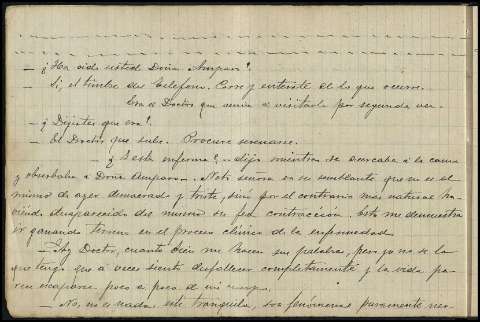 — ¿Ha oido usted Doña Amparo?
— Si, el timbre del teléfono. Corre y enterate de lo que ocurre.
Era el Doctor que venia á visitarla por segunda vez.
— ¿Dijistes que era?
— El Doctor, que sube. Procure serenarse.
— ¿Y esta enferma? — dijo mientras se acercaba á la cama
y observaba á Doña Amparo. — Noto señora en su semblante que no es el
mismo de ayer demacrado y triste, sinó por el contrario mas natural ha-
biendo desaparecido del mismo su fea contraccion. Esto me demuestra
ir ganando terreno en el proceso clínico de la enfermedad.
— Ay Doctor, cuanto bien me hacen sus palabras, pero yo no se lo
que tengo que á veces siento desfallecer completamente y la vida pa-
rece escaparse poco a poco de mi cuerpo.
— No, no es nada: esté tranquila, son fenómenos puramente ner-